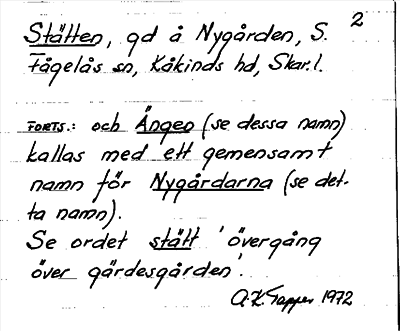 2
Stätten, gd å Nygården, S.
Fågelås sn, Kåkinds hd, Skar. l.
FORTS.: och Ängen (se dessa namn)
kallas med ett gemensamt
namn för Nygårdarna (se det-
ta namn).
Se ordet stätt 'övergång
över gärdesgården'.
1972